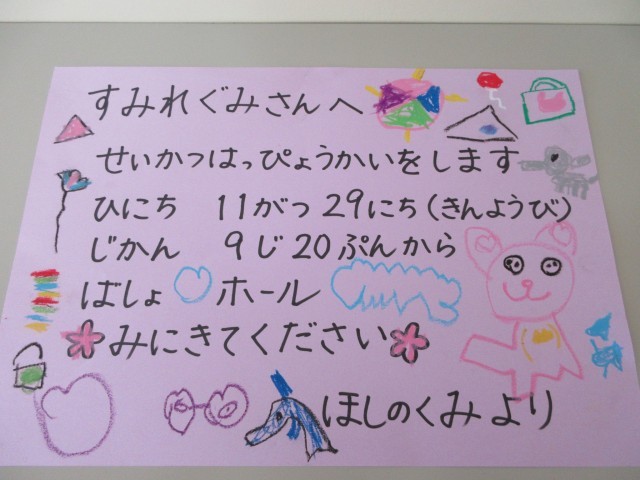 すみれぐみさんへ
せいかつはっぴょうかいをします
ひにち 11がつ29にち(きんようび)
じかん 9じ20ぷんから
ばしょ ホール
みにきてください
ほしのくみより